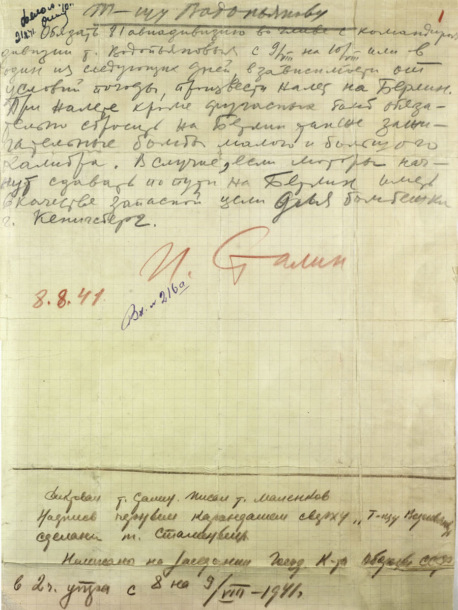 1
Т-щу Водопьянову
Обязать 81 авиадивизию во главе с командиром
дивизии т. Водопьяновым с 9/VIII на 10/VIII или в
один из следующих дней, в зависимости от
условий погоды, произвести налет на Берлин.
При налете кроме фугасных бомб обяза-
тельно сбросить на Берлин также зажи-
гательные бомбы малого и большого
калибра. В случае, если моторы нач-
нут сдавать по пути на Берлин иметь
в качестве запасной цели для бомбежки
г. Кенигсберг.
И. Сталин
8.8.41
Вх. № 216
Диктовал т. Сталин. Писал т. Маленков
Надпись первым карандашом сверху „Т-щу Водопьянову"
сделана т. Сталиным.
Написано на заседании Госуд. К-та Обороны СССР
в 2 ч. утра с 8 на 9/VIII-1941 г.